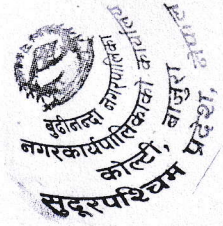 बुढीनन्दा नगरपालिका
नगरकार्यपालिकाको कार्यालय
कोल्टी, बाजुरा
सुदूरपश्चिम प्रदेश,
नेपाल